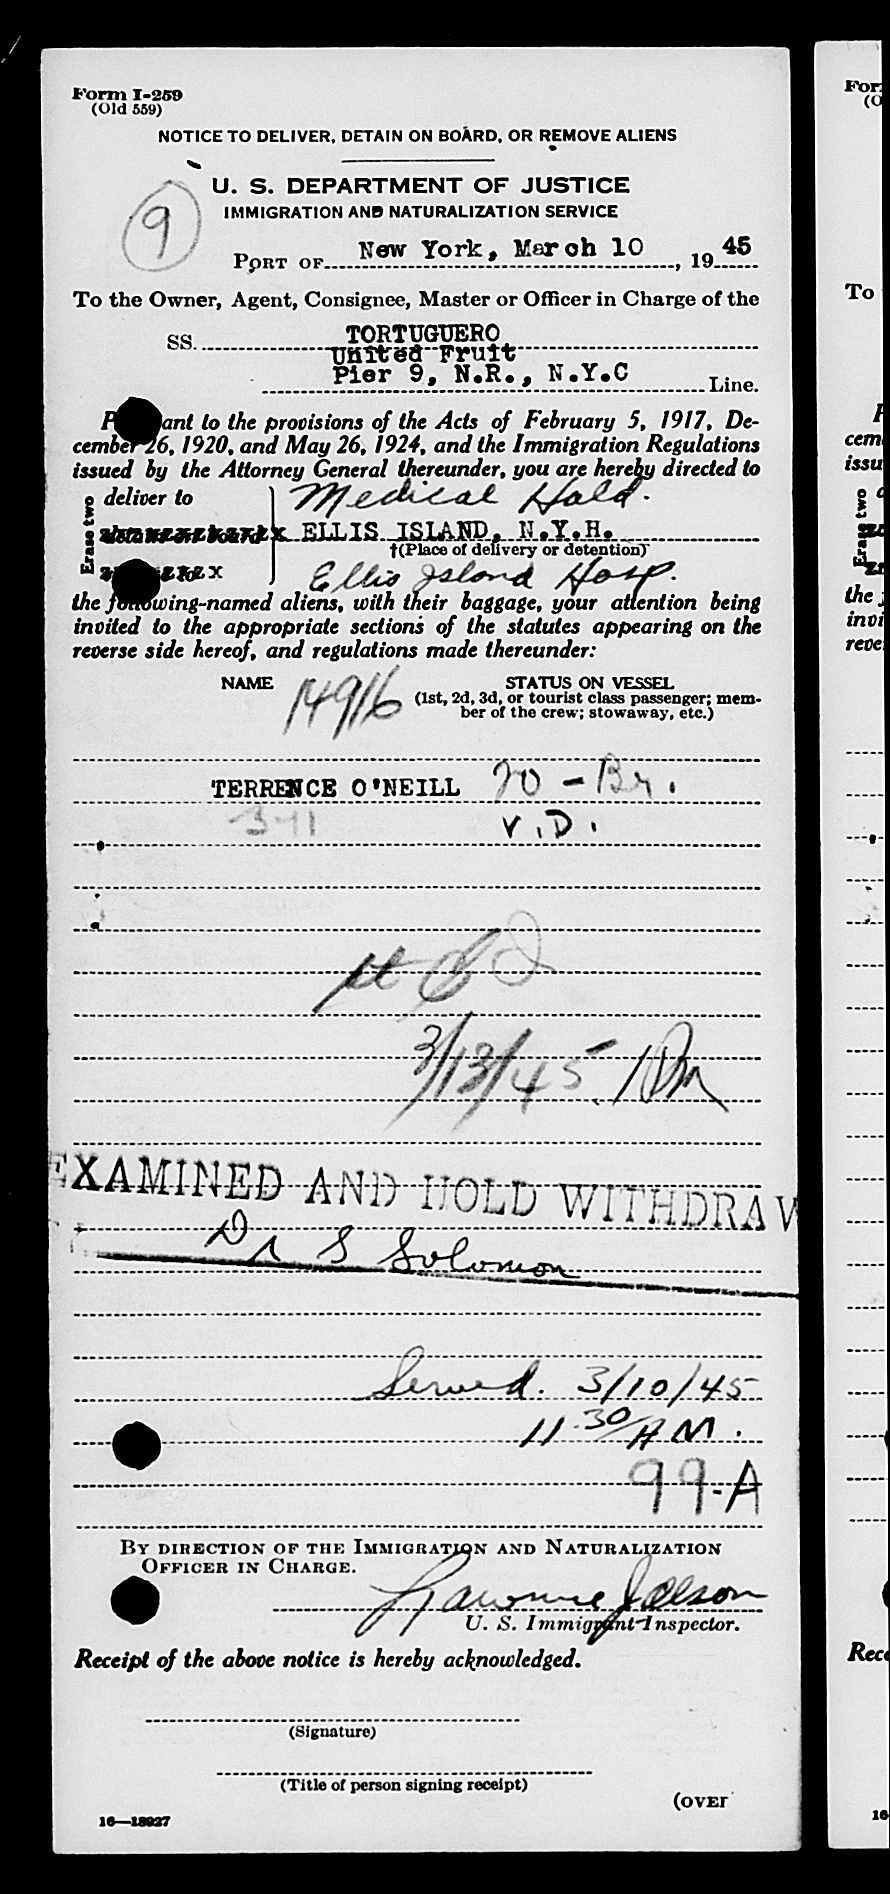 Form I-259
(Old 559)
NOTICE TO DELIVER, DETAIN ON BOARD, OR REMOVE ALIENS
U. S. DEPARTMENT OF JUSTICE
IMMIGRATION AND NATURALIZATION SERVICE
9
PORT OF New York, March 10, 1945
To the Owner, Agent, Consignee, Master or Officer in Charge of the
SS. TORTUGUERO
United Fruit
Pier 9, N.R., N.Y.C Line.
ant to the provisions of the Acts of February 5, 1917, De-
cember 26, 1920, and May 26, 1924, and the Immigration Regulations
issued by the Attorney General thereunder, you are hereby directed to
Erase two
deliver to Medical Hold.
ELLIS ISLAND, N.Y.H.
†(Place of delivery or detention)
Ellis Island Hosp.
the following-named aliens, with their baggage, your attention being
invited to the appropriate sections of the statutes appearing on the
reverse side hereof, and regulations made thereunder:
NAME 14916 STATUS ON VESSEL
(1st, 2d, 3d, or tourist class passenger; mem-
ber of the crew; stowaway, etc.)
TERRENCE O'NEILL 20 - Br.
341 V.D.
3/13/45.
EXAMINED AND HOLD WITHDRAW
Dr S Solomon
Served. 3/10/45
11.30/AM.
99-A
BY DIRECTION OF THE IMMIGRATION AND NATURALIZATION
OFFICER IN CHARGE.
U. S. Immigrant Inspector.
Receipt of the above notice is hereby acknowledged.
(Signature)
(Title of person signing receipt)
(OVER
16—18927